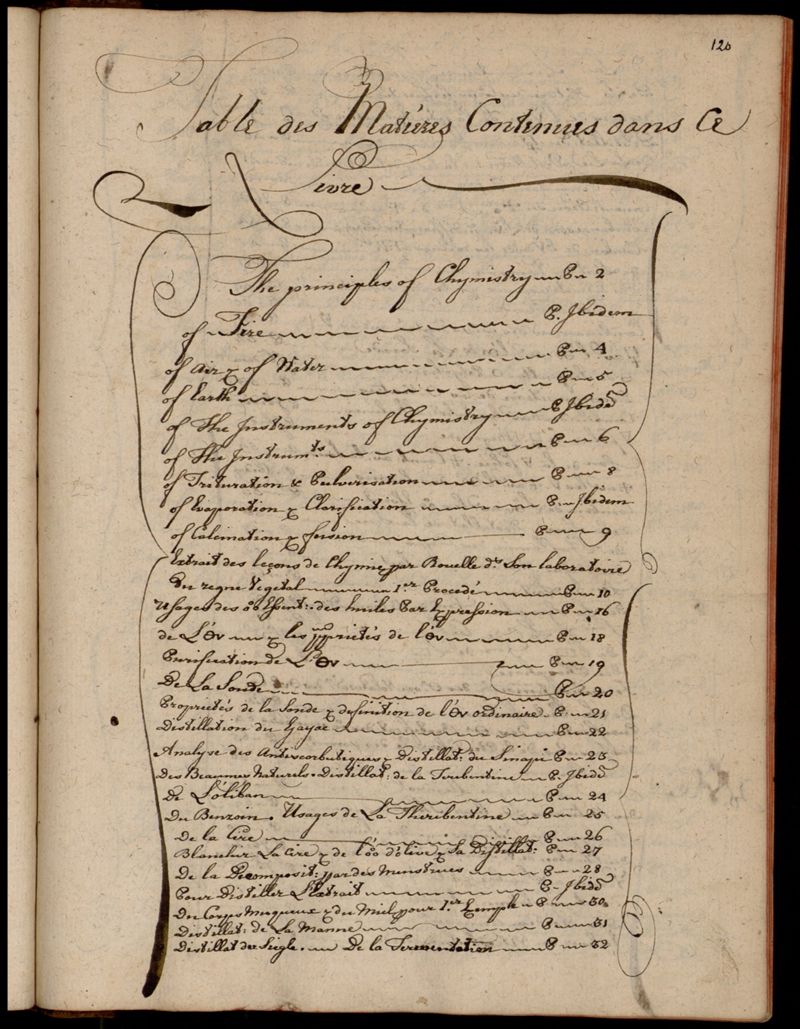 120
Table des Matières Contenues dans Ce
Livre
The principles of Chymistry P 2
of Fire P. Ibidem
of Air & of Water P 4
of Earth P 5
of The Instruments of Chymistry P Ibid
of The Instrumts P 6
of Trituration & Pulverisation P 8
of Evaporation & Clarification P Ibidem
of Calcination & fusion P 9
Extrait des leçons de Chymie par Rouelle ds Son laboratoire
Du regne Vegetal 1er Procedé P 10
Usages des Essent: des huiles Par Expression P 16
de L' & les pprietés de l' P 18
Purification de L' P 19
De La Soude P 20
Propriétés de la Soude & definition de l' ordinaire P 21
Distillation du Gayac P 22
Analyse des Antiscorbutiques & Distillat: du Sinapi P 23
Des Beaumes Naturels. Distillat: de la Terebentine P. Ibid
De L'oliban P 24
Du Benzoin. Usages de La Therebentine P 25
De la Cire P 26
Blanchir La Cire & de l' d'olive & Sa Distillat: P 27
De la Decomposit: par des Menstrues P 28
Pour Distiller L'Extrait P. Ibid
Du Corps Muqueux & du Miel pour 1er Exemple P 30
Distillat: de La Manne P 31
Distillat du Seigle. De la Fermentation P 32